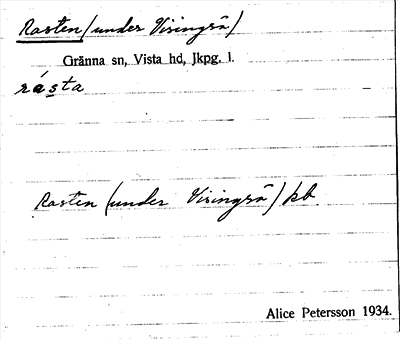 Rasten (under Visingsö)
Gränna sn, Vista hd, Jkpg. l.
rásta
Rasten (under Visingsö) kb
Alice Petersson 1934.